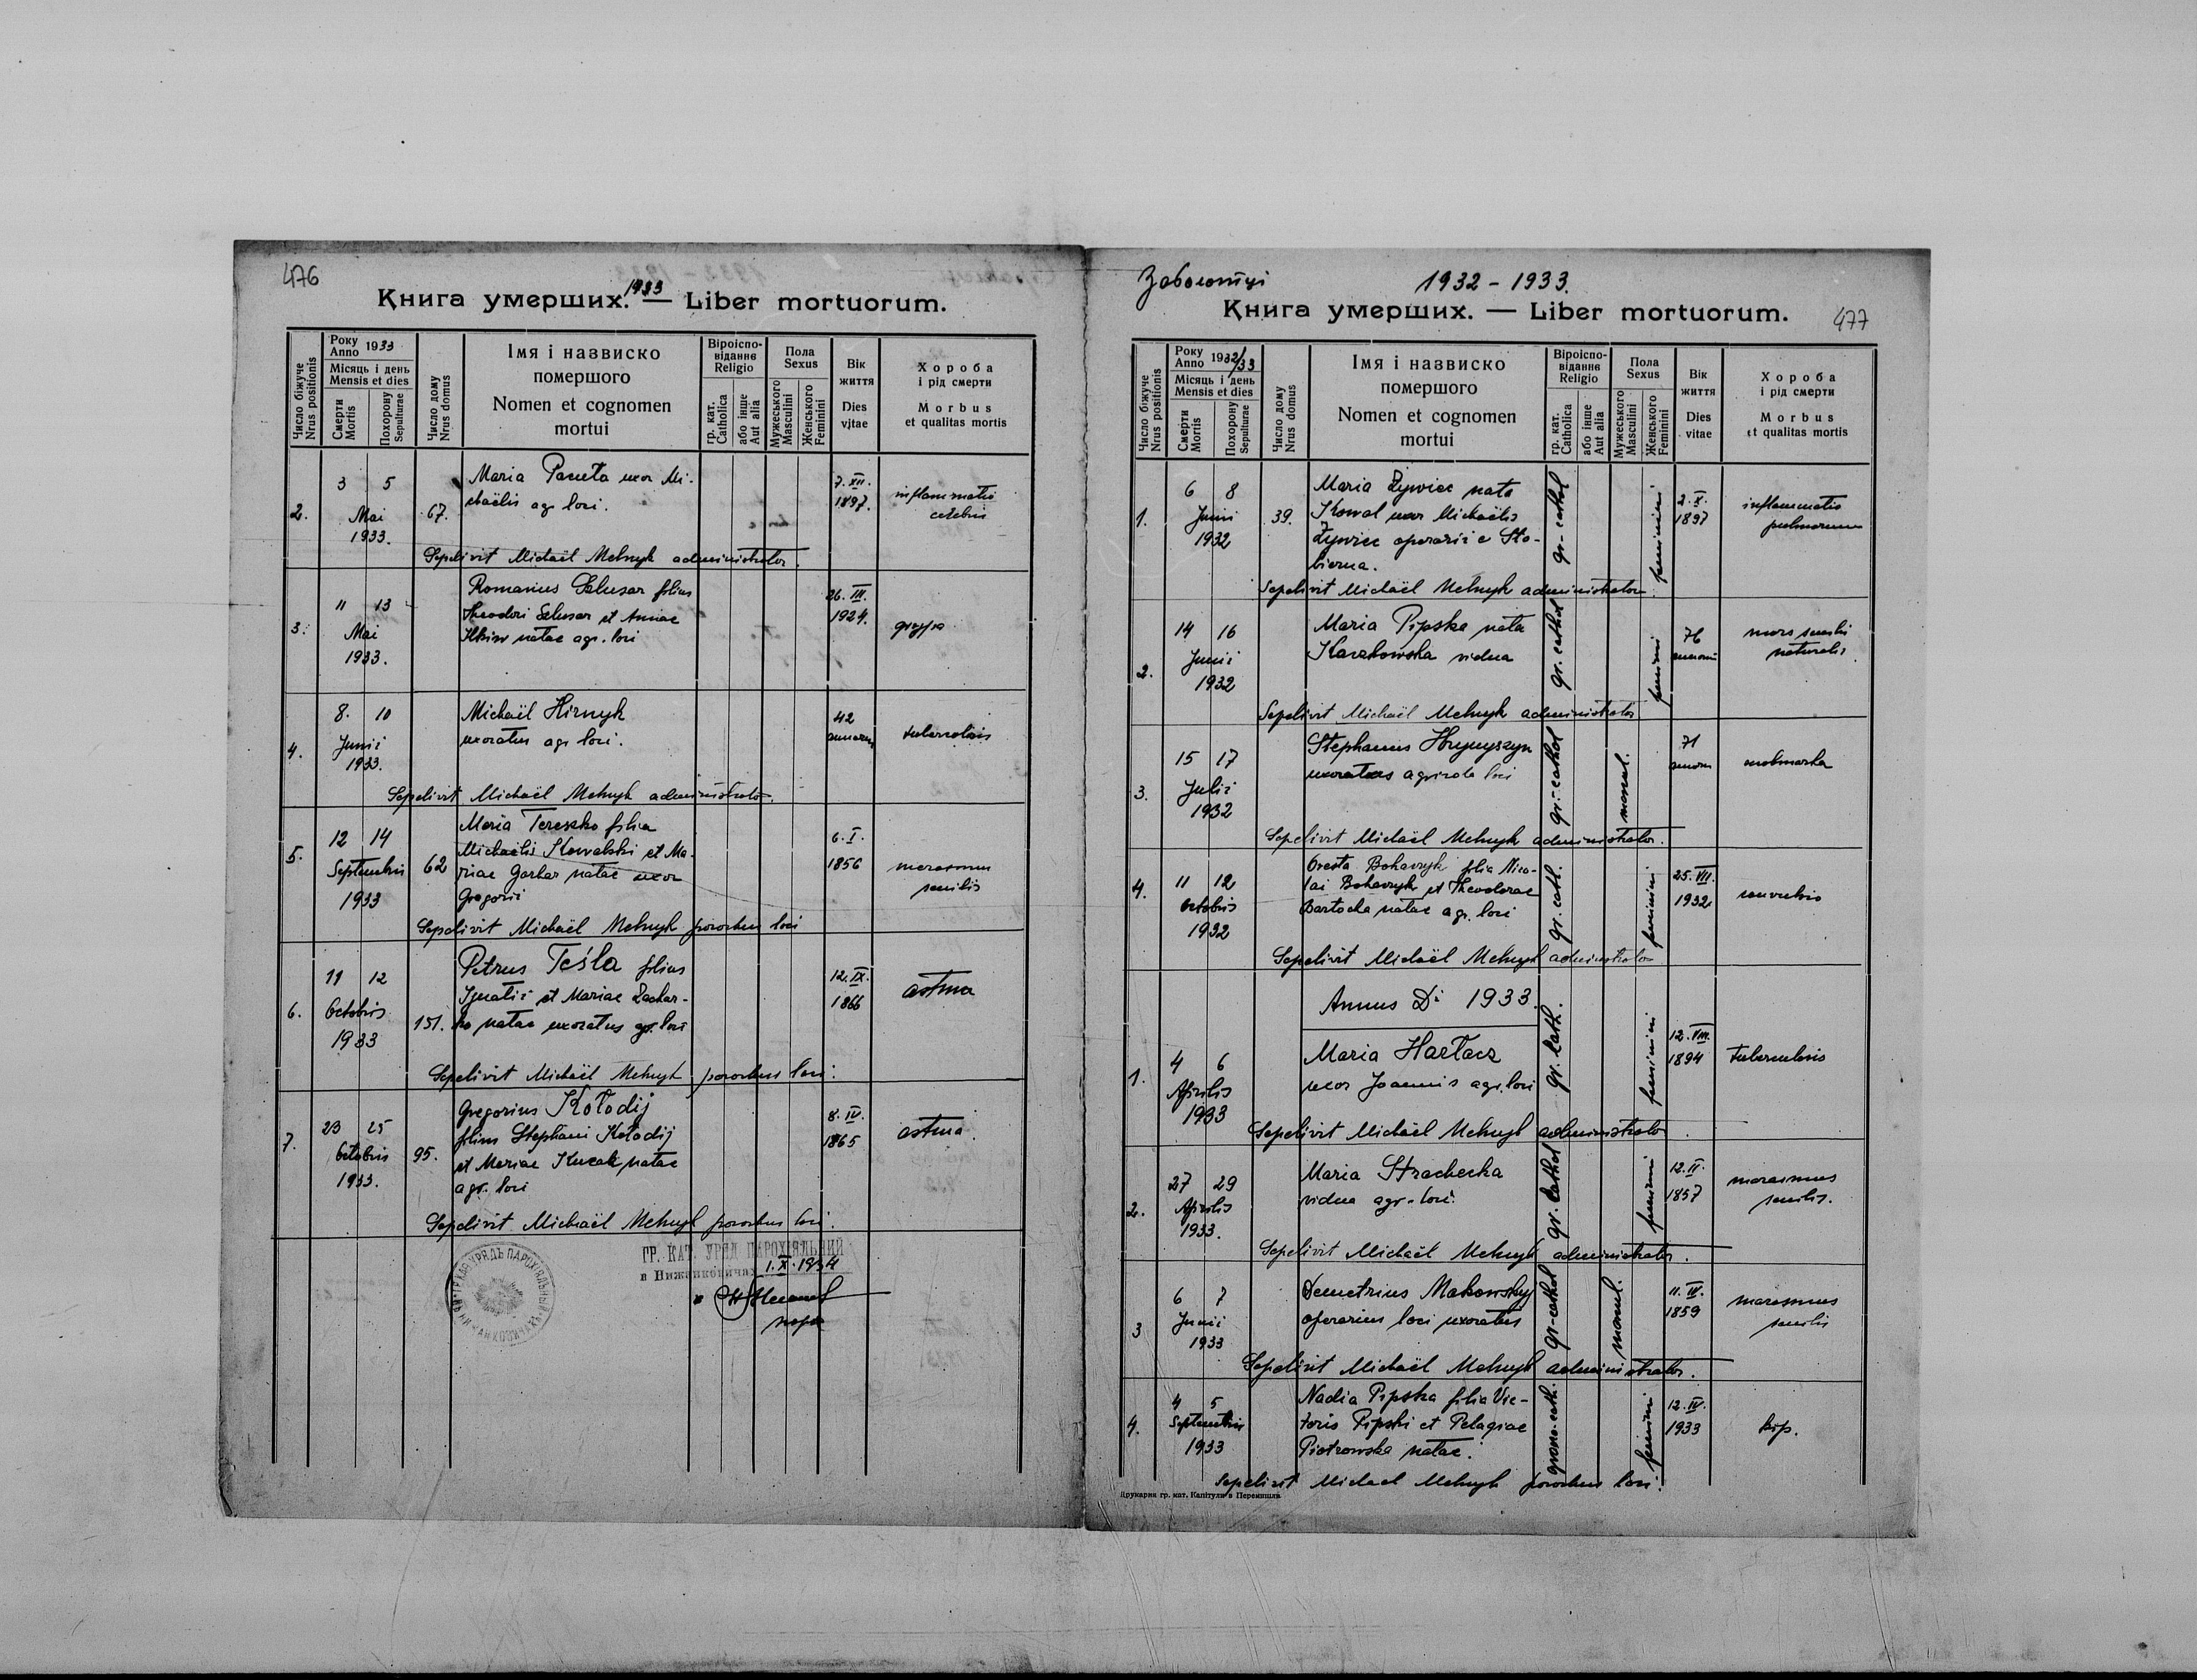 476
1933
Книга умерших. — Liber mortuorum.
Число біжуче
Nrus positionis
Року
Anno 1933
Місяць і день
Mensis et dies
Смерти
Mortis
Похорону
Sepulturae
Число дому
Nrus domus
Імя і назвиско
помершого
Nomen et cognomen
mortui
Віроіспо-
віданнє
Religio
гр. кат.
Catholica
або інше
Aut alia
Пола
Sexus
Мужеського
Masculini
Женського
Feminini
Вік
життя
Dies
vitae
Хороба
і рід смерти
Morbus
et qualitas mortis
2.
3 5
Mai
1933.
67.
Maria Paneta uxor Mi-
chaëlis agr. loci.
7. XII.
1897.
inflammatio
cerebri
Sepelivit Michaël Melnyk administrator.
3.
11 13
Mai
1933.
Romanus Selusar filius
Theodori Selusar et Annae
Ilkiw natae agr. loci
26. III.
1924.
grypa
4.
8. 10
Junii
1933.
Michaël Hirnyk
uxoratus agr loci.
42
annorum
tuberculosis
Sepelivit Michaël Melnyk administrator.
5.
12 14
Septembris
1933
62
Maria Tereszko filia
Michaelis Kowalski et Ma-
riae Garbar natae uxor
Gregorii
6. I.
1856
marasmus
senilis
Sepelivit Michaël Melnyk parochus loci
6.
11 12
Octobris
1933
151.
Petrus Teśla filius
Ignatii et Mariae Zachar-
ko natae uxoratus agr. loci
12. IX.
1866
astma
Sepelivit Michaël Melnyk parochus loci.
7.
23 25
Octobris
1933.
95.
Gregorius Kołodij
filius Stephani Kołodij
et Mariae Kucab natae
agr. loci
8. IV.
1865
astma.
Sepelivit Michaël Melnyk parochus loci.
ГР. КАТ. УРЯД ПАРОХІЯЛЬНИЙ
в Нижанковичах 1. X. 1934
Заболотці
1932 - 1933.
Книга умерших. — Liber mortuorum.
477
Число біжуче
Nrus positionis
Року
Anno 1932/33
Місяць і день
Mensis et dies
Смерти
Mortis
Похорону
Sepulturae
Число дому
Nrus domus
Імя і назвиско
помершого
Nomen et cognomen
mortui
Віроіспо-
віданнє
Religio
гр. кат.
Catholica
або інше
Aut alia
Пола
Sexus
Мужеського
Masculini
Женського
Feminini
Вік
життя
Dies
vitae
Хороба
і рід смерти
Morbus
et qualitas mortis
1.
6 8
Junii
1932
39.
Maria Żywiec nata
Kowal uxor Michaëlis
Żywiec operarii e Sto-
bierna.
gr-cathol
feminini
2. X.
1897
inflammatio
pulmonum
Sepelivit Michaël Melnyk administrator.
2.
14 16
Junii
1932
Maria Pipska nata
Kaczkowska vidua
gr. cathol
feminini
76
annorum
mors senilis
naturalis
Sepelivit Michaël Melnyk administrator
3.
15 17
Julii
1932
Stephanus Hrynyszyn
uxoratus agricola loci
gr.-cathol
mascul.
71
annorum
Sepelivit Michaël Melnyk administrator.
4.
11 12
Octobris
1932
Oresta Bohaczyk filia Nico-
lai Bohaczyk et Theodorae
Bartocha natae agr. loci
gr. cath.
feminini
25. VII.
1932
convulsio
Sepelivit Michaël Melnyk administrator
Annus Di 1933.
1.
4 6
Aprilis
1933
Maria Harłacz
uxor Joannis agr. loci
gr. cath.
feminini
12. VIII.
1894
tuberculosis
Sepelivit Michaël Melnyk administrator
2.
27 29
Aprilis
1933.
Maria Strachecka
vidua agr. loci.
gr. cathol
feminini
12. II.
1857
marasmus
senilis.
Sepelivit Michaël Melnyk administrator.
3
6 7
Junii
1933
Demetrius Makowskyj
operarius loci uxoratus
gr-cathol
mascul.
11. IV.
1859
marasmus
senilis
Sepelivit Michaël Melnyk administrator.
4.
4 5
Septembris
1933
Nadia Pipska filia Vic-
toris Pipski et Pelagiae
Piotrowska natae.
feminini
12. IV.
1933
Sepelivit Michael Melnyk parochus loci.
Друкарня гр. кат. Капітули в Перемишли.